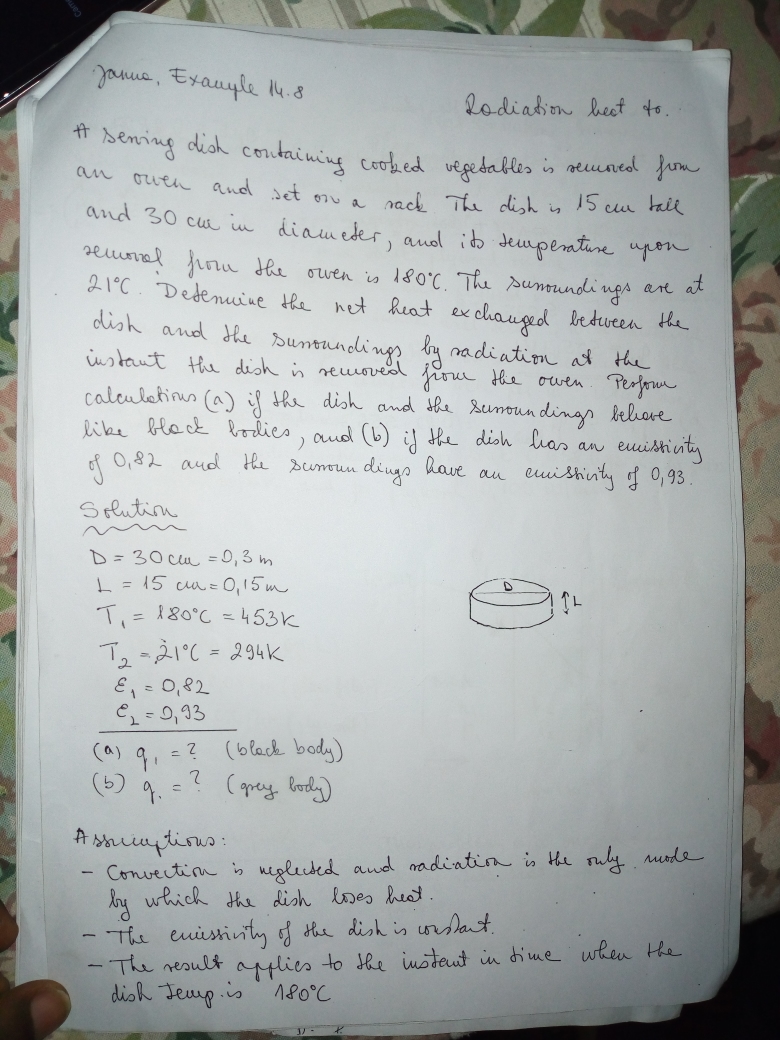 Janna, Example 14.8
Radiation heat tr.
A serving dish containing cooked vegetables is removed from
an owen and set on a rack. The dish is 15 cm tall
and 30 cm in diameter, and its temperature upon
removal from the owen is 180°C. The surroundings are at
21°C. Determine the net heat exchanged between the
dish and the surroundings by radiation at the
instant the dish is removed from the owen. Perform
calculations (a) if the dish and the surroundings behave
like black bodies, and (b) if the dish has an emissivity
of 0,82 and the surroundings have an emissivity of 0,93.
Solution
D = 30 cm = 0,3 m
L = 15 cm = 0,15 m
D
L
T₁ = 180°C = 453K
T₂ = 21°C = 294K
ε₁ = 0,82
ε₂ = 0,93
(a) q₁ = ? (black body)
(b) q. = ? (grey body)
Assumptions:
- Convection is neglected and radiation is the only mode
by which the dish loses heat.
- The emissivity of the dish is constant.
- The result applies to the instant in time when the
dish temp. is 180°C